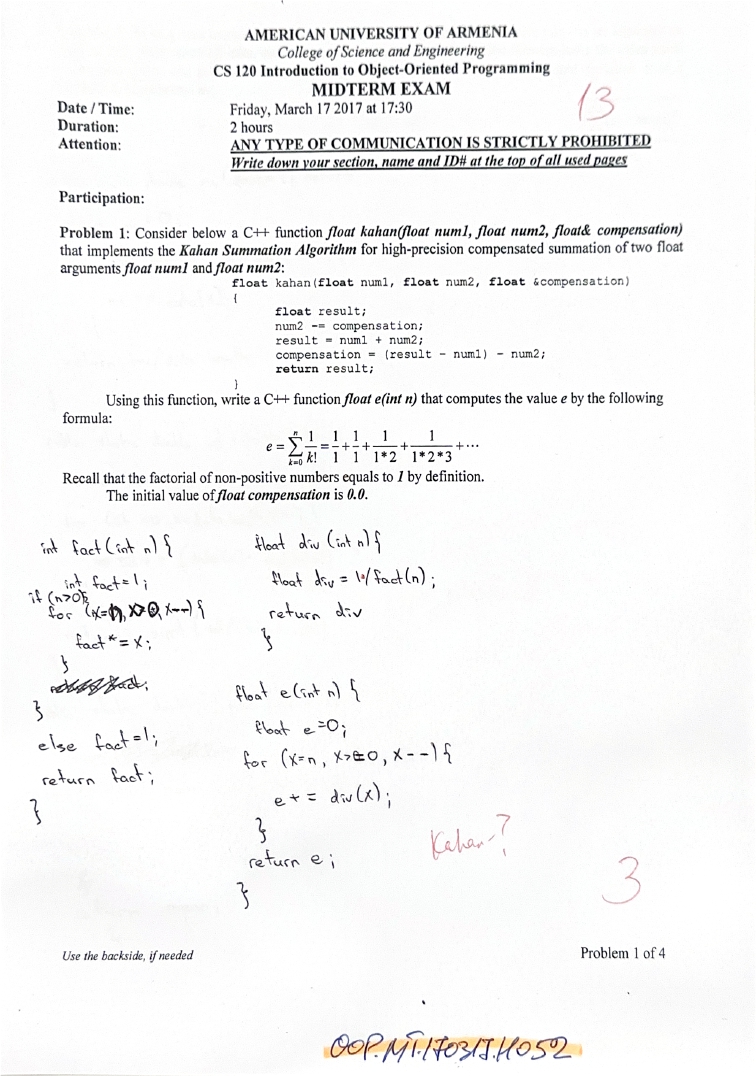 AMERICAN UNIVERSITY OF ARMENIA
College of Science and Engineering
CS 120 Introduction to Object-Oriented Programming
MIDTERM EXAM
13
Date / Time: Friday, March 17 2017 at 17:30
Duration: 2 hours
Attention: ANY TYPE OF COMMUNICATION IS STRICTLY PROHIBITED
Write down your section, name and ID# at the top of all used pages
Participation:
Problem 1: Consider below a C++ function float kahan(float num1, float num2, float& compensation)
that implements the Kahan Summation Algorithm for high-precision compensated summation of two float
arguments float num1 and float num2:
float kahan(float num1, float num2, float &compensation)
{
float result;
num2 -= compensation;
result = num1 + num2;
compensation = (result - num1) - num2;
return result;
}
Using this function, write a C++ function float e(int n) that computes the value e by the following
formula:
e = ∑ⁿₖ₌₀ 1/k! = 1/1 + 1/1 + 1/1*2 + 1/1*2*3 + ⋯
Recall that the factorial of non-positive numbers equals to 1 by definition.
The initial value of float compensation is 0.0.
int fact(int n) {
int fact=1;
if (n>0){
for (x=n, x>0, x--) {
fact*=x;
}
}
else fact=1;
return fact;
}
float div (int n) {
float div = 1./fact(n);
return div
}
float e(int n) {
float e=0;
for (x=n, x>=0, x--) {
e+= div(x);
}
return e;
}
Kahan-?
3
Use the backside, if needed
Problem 1 of 4